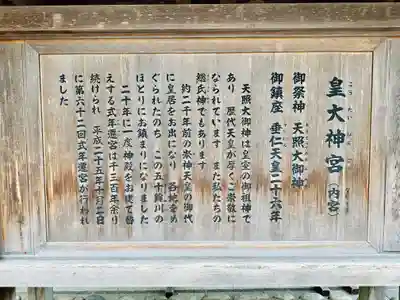 皇大神宮（内宮）
こうたいじんぐう
御祭神 天照大御神
御鎮座 垂仁天皇二十六年
天照大御神は皇室の御祖神で
あり 歴代天皇が厚くご崇敬に
なられています また私たちの
総氏神でもあります
約二千年前の崇神天皇の御代
に皇居をお出になり 各地をめ
ぐられたのち この五十鈴川の
ほとりにお鎮まりになりました
二十年に一度神殿をお建て替
えする式年遷宮は千三百年余り
続けられ 平成二十五年十月二日
に第六十二回式年遷宮が行われ
ました